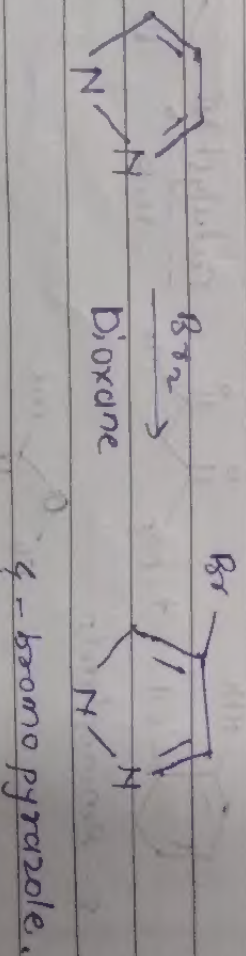 N N Br2 → Dioxane Br N N
4-bromo pyrazole.